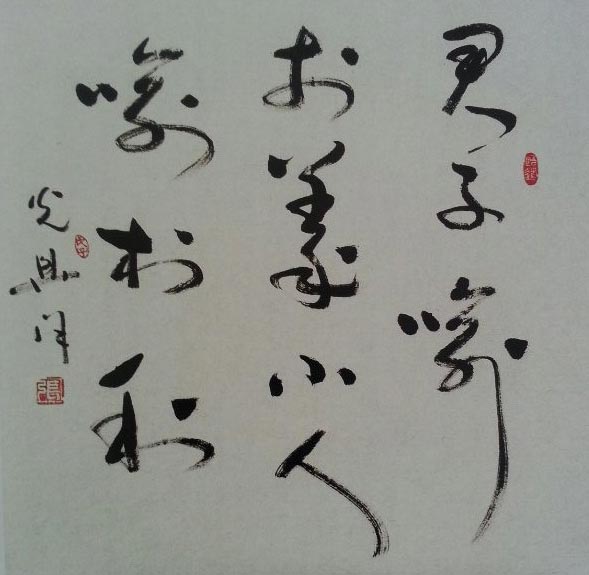 君子喻
於義小人
喻於利